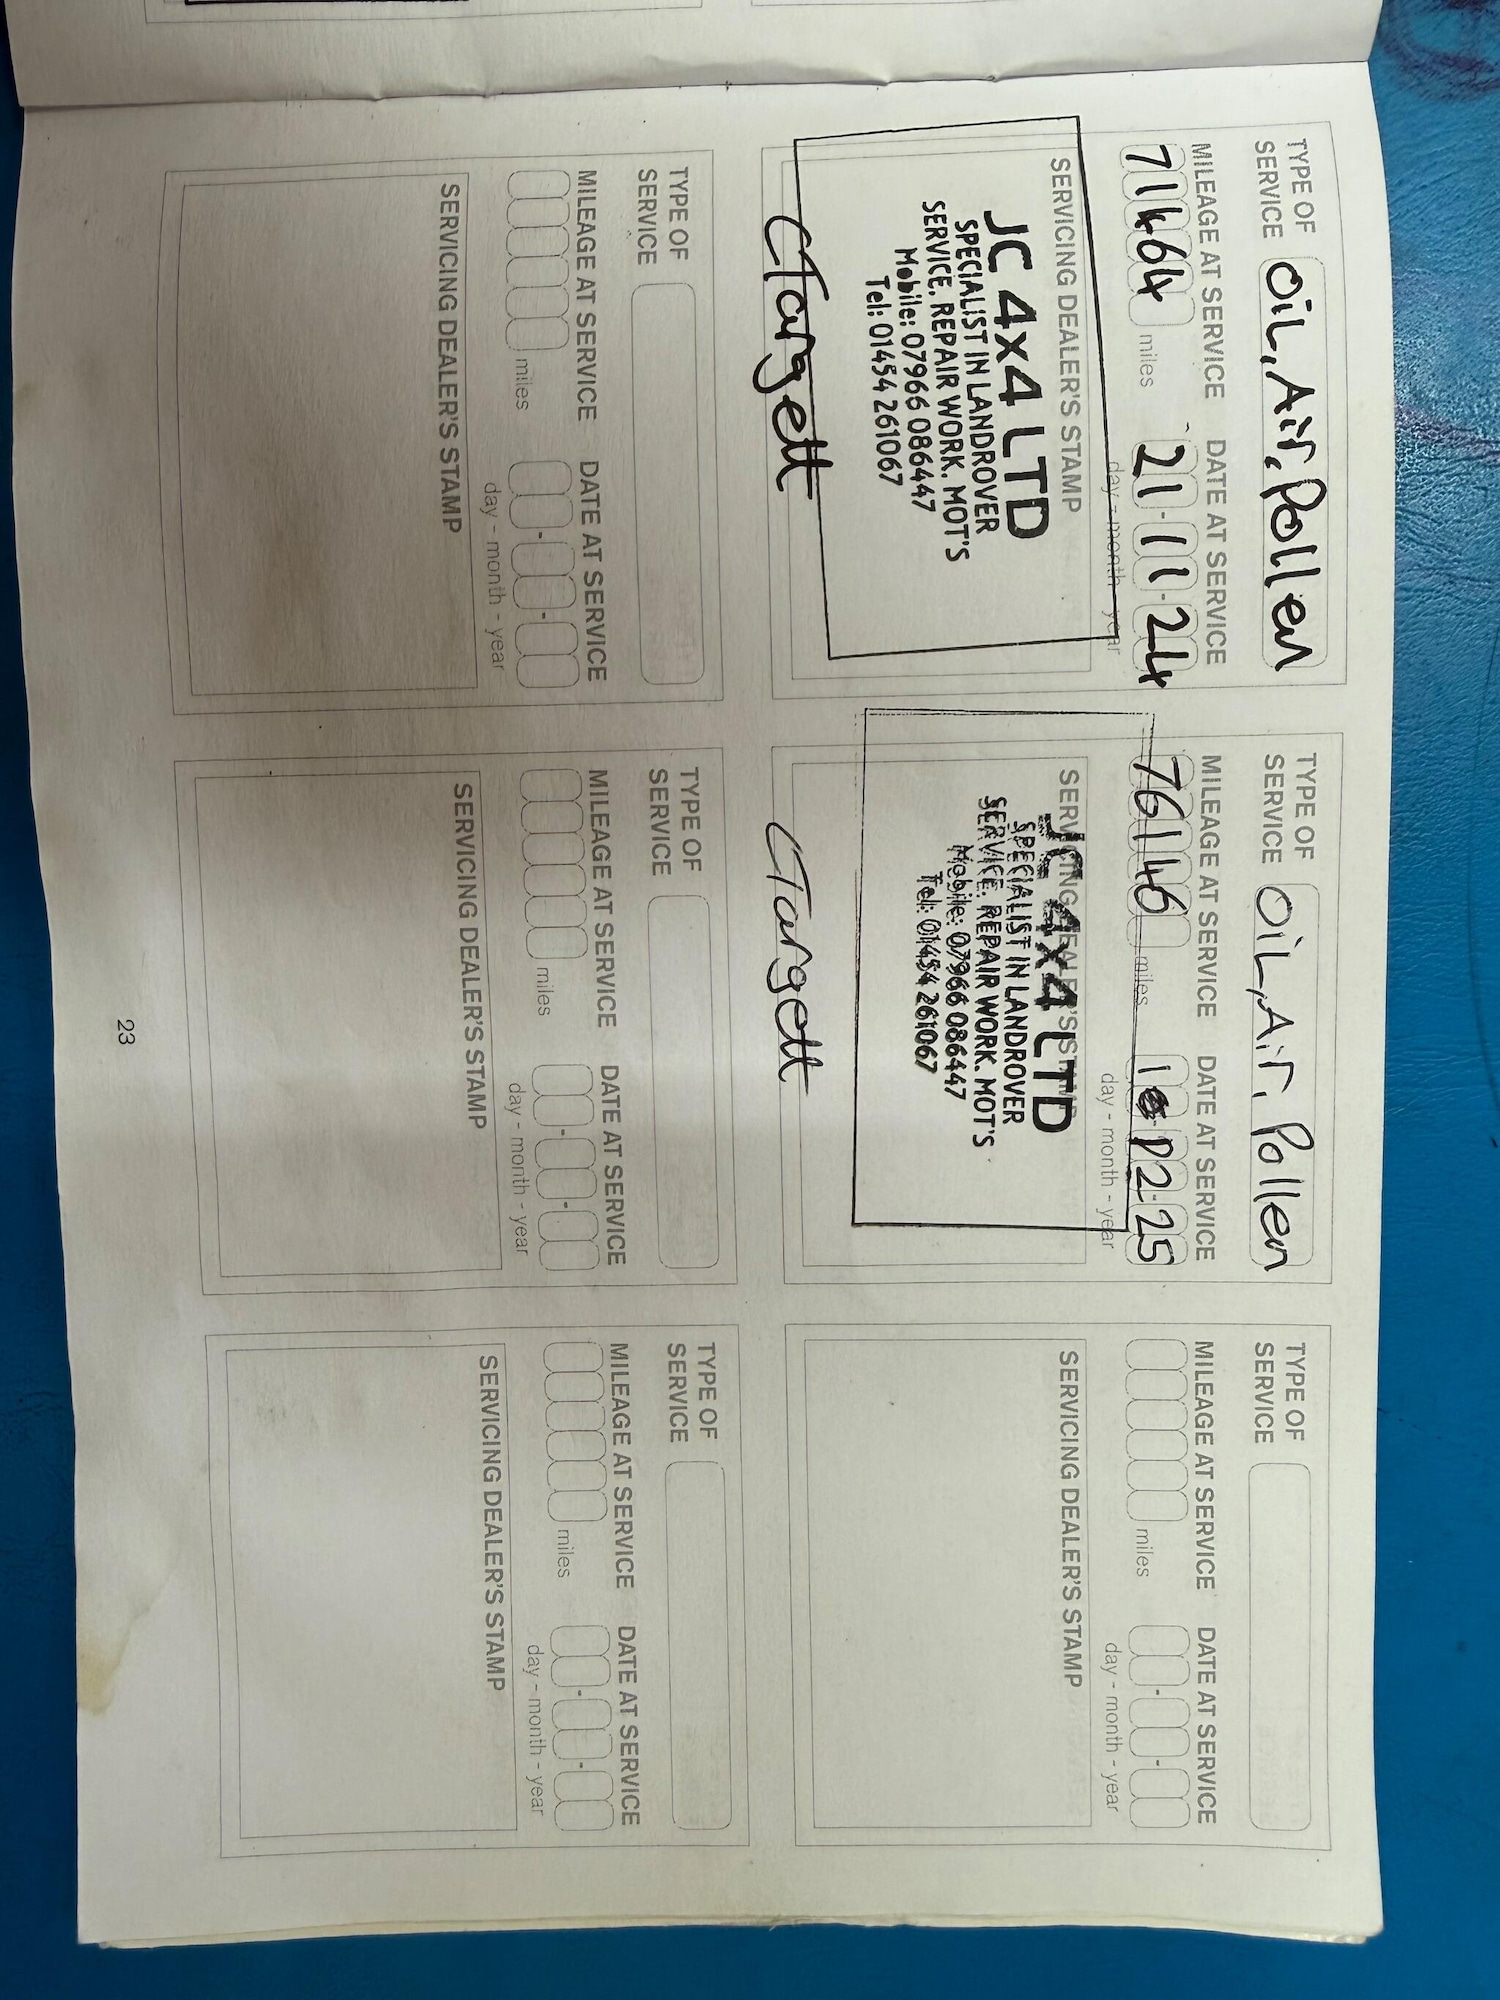 TYPE OF
SERVICE
OiL, Air, Pollen
MILEAGE AT SERVICE DATE AT SERVICE
71464 miles 21-11-24
day - month - year
SERVICING DEALER'S STAMP
JC 4x4 LTD
SPECIALIST IN LANDROVER
SERVICE. REPAIR WORK. MOT'S
Mobile: 07966 086447
Tel: 01454 261067
CTargett
TYPE OF
SERVICE
OiL, Air, Pollen
MILEAGE AT SERVICE DATE AT SERVICE
76146 miles 1 12-25
day - month - year
SERVICING DEALER'S STAMP
JC 4x4 LTD
SPECIALIST IN LANDROVER
SERVICE. REPAIR WORK. MOT'S
Mobile: 07966 086447
Tel: 01454 261067
CTargett
TYPE OF
SERVICE
MILEAGE AT SERVICE DATE AT SERVICE
miles
day - month - year
SERVICING DEALER'S STAMP
TYPE OF
SERVICE
MILEAGE AT SERVICE DATE AT SERVICE
miles
day - month - year
SERVICING DEALER'S STAMP
TYPE OF
SERVICE
MILEAGE AT SERVICE DATE AT SERVICE
miles
day - month - year
SERVICING DEALER'S STAMP
TYPE OF
SERVICE
MILEAGE AT SERVICE DATE AT SERVICE
miles
day - month - year
SERVICING DEALER'S STAMP
23